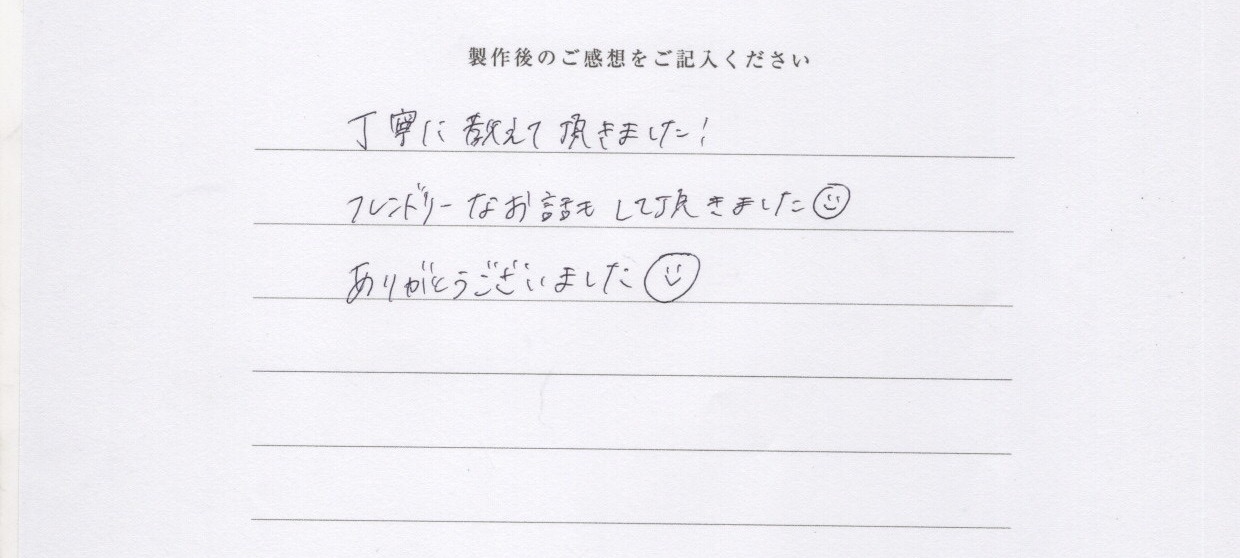 製作後のご感想をご記入ください
丁寧に教えて頂きました!
フレンドリーなお話もして頂きました☺
ありがとうございました☺